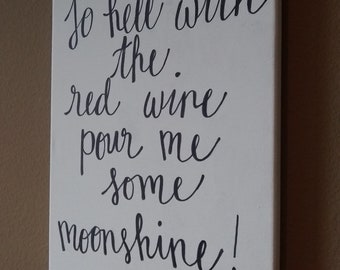 To hell with
the
red wine
pour me
some
moonshine!